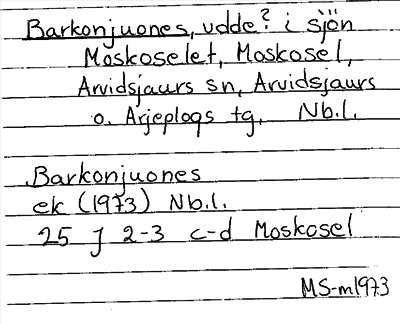 Barkonjuones, udde? i sjön
Moskoselet, Moskosel,
Arvidsjaurs sn, Arvidsjaurs
o. Arjeplogs tg. Nb.l.
Barkonjuones
ek (1973) Nb.l.
25 J 2-3 c-d Moskosel
MS-m1973